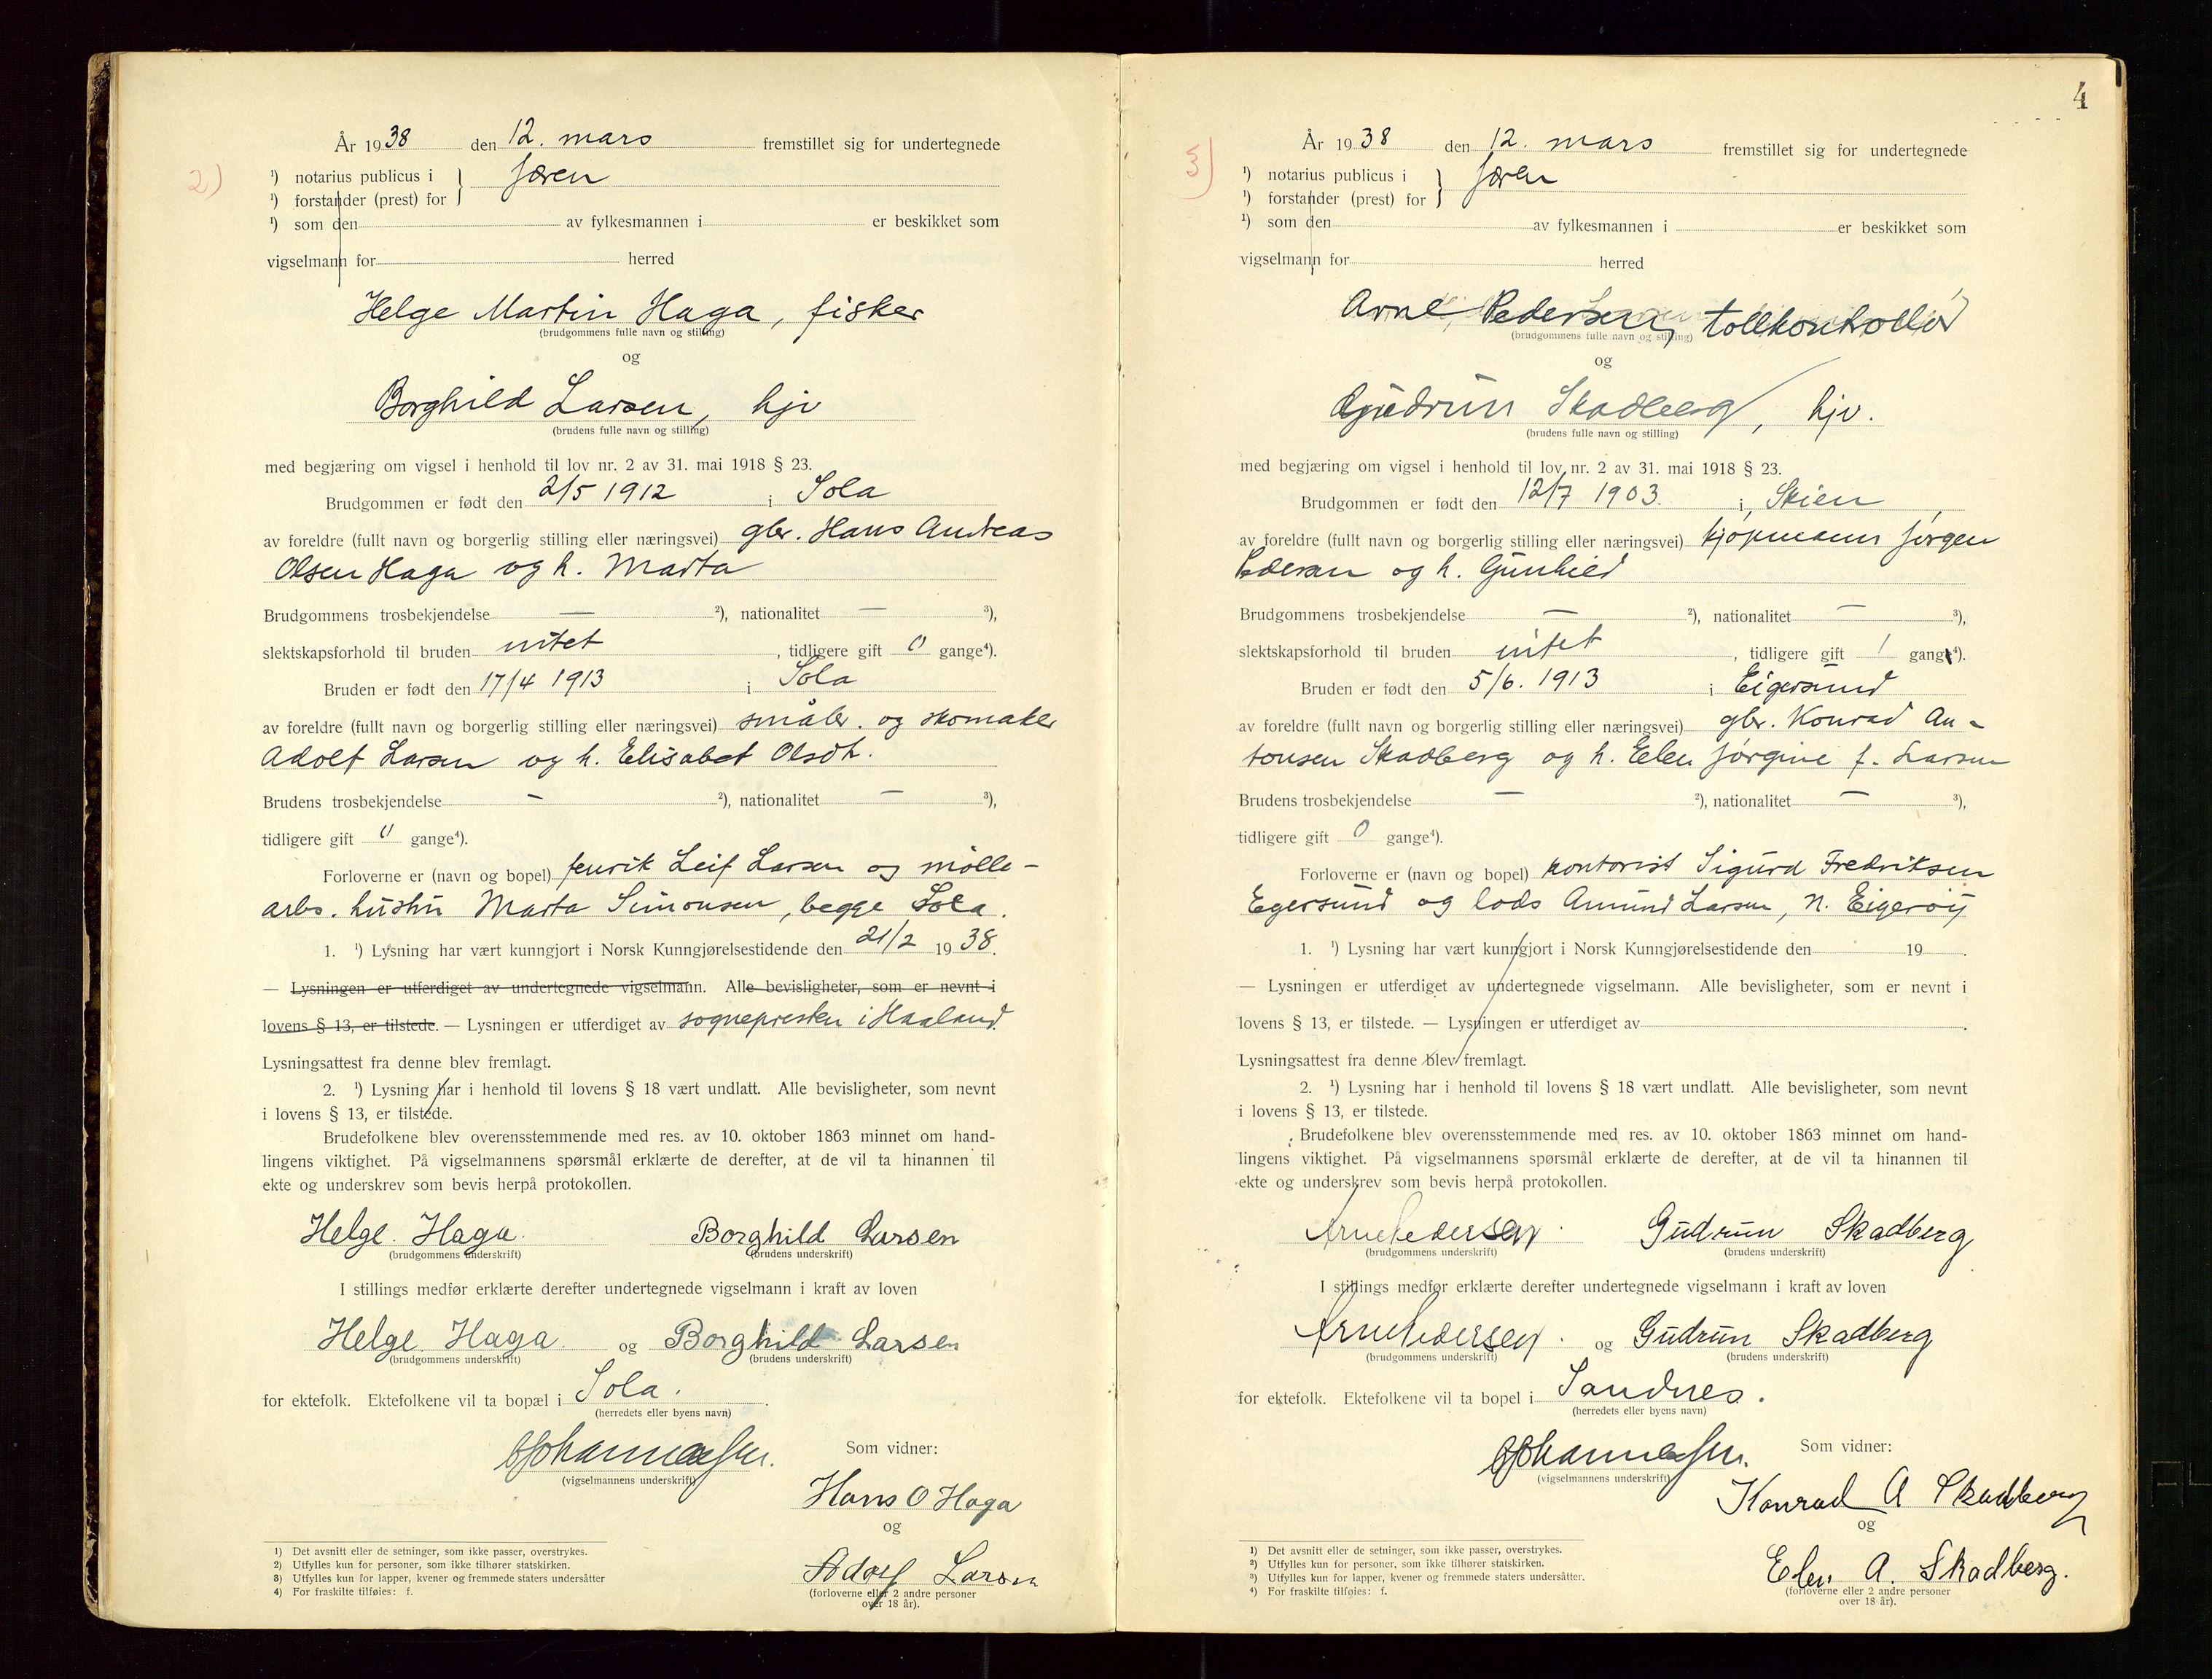 2)
År 1938 den 12. mars fremstillet sig for undertegnede
¹) notarius publicus i } Jæren
¹) forstander (prest) for
¹) som den av fylkesmannen i er beskikket som
vigselmann for herred
Helge Martin Haga, fisker
(brudgommens fulle navn og stilling)
og
Borghild Larsen, hjv
(brudens fulle navn og stilling)
med begjæring om vigsel i henhold til lov nr. 2 av 31. mai 1918 § 23.
Brudgommen er født den 2/5 1912 i Sola
av foreldre (fullt navn og borgerlig stilling eller næringsvei) gbr. Hans Andreas
Olsen Haga og h. Marta
Brudgommens trosbekjendelse — ²), nationalitet — ³),
slektskapsforhold til bruden intet, tidligere gift 0 gange⁴).
Bruden er født den 17/4 1913 i Sola
av foreldre (fullt navn og borgerlig stilling eller næringsvei) småbr. og skomaker
Adolf Larsen og h. Elisabet Olsdt.
Brudens trosbekjendelse — ²), nationalitet — ³),
tidligere gift 0 gange⁴).
Forloverne er (navn og bopel) Henrik Leif Larsen og mölle-
arbs. hustru Marta Simonsen, begge Sola.
1. ¹) Lysning har vært kunngjort i Norsk Kunngjørelsestidende den 21/2 1938.
— Lysningen er utferdiget av undertegnede vigselmann. Alle bevisligheter, som er nevnt i
lovens § 13, er tilstede. — Lysningen er utferdiget av sognepresten i Haaland.
Lysningsattest fra denne blev fremlagt.
2. ¹) Lysning har i henhold til lovens § 18 vært undlatt. Alle bevisligheter, som nevnt
i lovens § 13, er tilstede.
Brudefolkene blev overensstemmende med res. av 10. oktober 1863 minnet om hand-
lingens viktighet. På vigselmannens spørsmål erklærte de derefter, at de vil ta hinannen til
ekte og underskrev som bevis herpå protokollen.
Helge Haga. Borghild Larsen
(brudgommens underskrift) (brudens underskrift)
I stillings medfør erklærte derefter undertegnede vigselmann i kraft av loven
Helge Haga. og Borghild Larsen
(brudgommens underskrift) (brudens underskrift)
for ektefolk. Ektefolkene vil ta bopæl i Sola.
(herredets eller byens navn)
Johannessen. Som vidner:
(vigselmannens underskrift)
Hans O Haga
og
Adolf Larsen
(forloverne eller 2 andre personer
over 18 år).
1) Det avsnitt eller de setninger, som ikke passer, overstrykes.
2) Utfylles kun for personer, som ikke tilhører statskirken.
3) Utfylles kun for lapper, kvener og fremmede staters undersåtter
4) For fraskilte tilføies: f.
4
3)
År 1938 den 12. mars fremstillet sig for undertegnede
¹) notarius publicus i } Jæren
¹) forstander (prest) for
¹) som den av fylkesmannen i er beskikket som
vigselmann for herred
Arne Pedersen, tollkontrollør
(brudgommens fulle navn og stilling)
og
Gudrun Skadberg, hjv.
(brudens fulle navn og stilling)
med begjæring om vigsel i henhold til lov nr. 2 av 31. mai 1918 § 23.
Brudgommen er født den 12/7 1903. i Skien
av foreldre (fullt navn og borgerlig stilling eller næringsvei) kjøpmann Jørgen
Pedersen og h. Gunhild
Brudgommens trosbekjendelse — ²), nationalitet — ³),
slektskapsforhold til bruden intet, tidligere gift 1 gang⁴).
Bruden er født den 5/6. 1913 i Eigersund
av foreldre (fullt navn og borgerlig stilling eller næringsvei) gbr. Konrad An-
tonsen Skadberg og h. Elen Jørgine f. Larsen
Brudens trosbekjendelse — ²), nationalitet — ³),
tidligere gift 0 gange⁴).
Forloverne er (navn og bopel) kontorist Sigurd Fredriksen
Egersund og lods Amund Larsen, N. Eigerøy
1. ¹) Lysning har vært kunngjort i Norsk Kunngjørelsestidende den 19 .
— Lysningen er utferdiget av undertegnede vigselmann. Alle bevisligheter, som er nevnt i
lovens § 13, er tilstede. — Lysningen er utferdiget av .
Lysningsattest fra denne blev fremlagt.
2. ¹) Lysning har i henhold til lovens § 18 vært undlatt. Alle bevisligheter, som nevnt
i lovens § 13, er tilstede.
Brudefolkene blev overensstemmende med res. av 10. oktober 1863 minnet om hand-
lingens viktighet. På vigselmannens spørsmål erklærte de derefter, at de vil ta hinannen til
ekte og underskrev som bevis herpå protokollen.
Arne Pedersen. Gudrun Skadberg
(brudgommens underskrift) (brudens underskrift)
I stillings medfør erklærte derefter undertegnede vigselmann i kraft av loven
Arne Pedersen. og Gudrun Skadberg
(brudgommens underskrift) (brudens underskrift)
for ektefolk. Ektefolkene vil ta bopel i Sandnes.
(herredets eller byens navn)
Johannessen. Som vidner:
(vigselmannens underskrift)
Konrad A Skadberg
og
Elen A. Skadberg.
(forloverne eller 2 andre personer
over 18 år).
1) Det avsnitt eller de setninger, som ikke passer, overstrykes.
2) Utfylles kun for personer, som ikke tilhører statskirken.
3) Utfylles kun for lapper, kvener og fremmede staters undersåtter.
4) For fraskilte tilføies: f.